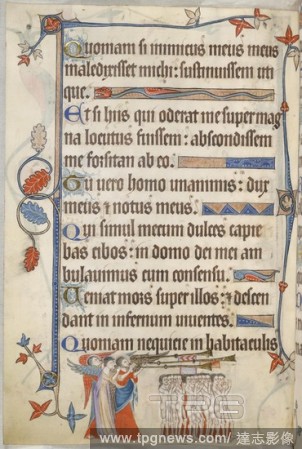 Quoniam si inimicus meus meus
maledixisset michi: sustinuissem uti
que.
Et si hiis qui oderat me super mag
na locutus fuisset: abscondissem
me forsitan ab eo.
Tu vero homo unanimis: dux
meus & notus meus.
Qui simul mecum dulces capie
bas cibos: in domo dei am
bulavimus cum consensu.
Veniat mors super illos: & descen
dant in infernum viventes.
Quoniam nequicie in habitaculis
TPG
www.tpgnews.com/ 達志影像